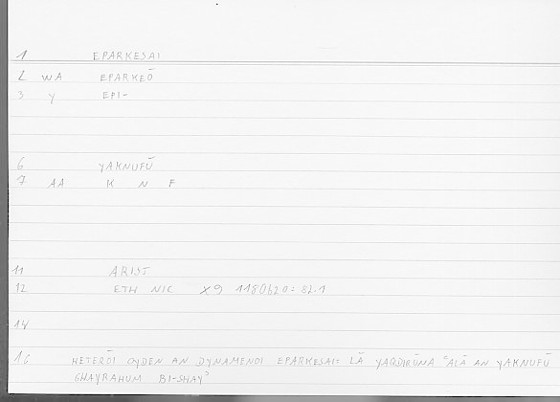 1 EPARKESAI
2 WA EPARKEŌ
3 Y EPI-
6 YAKNUFŪ
7 AA K N F
11 ARIST
12 ETH NIC X9 1180b20 = 82.1
14
16 HETERŌI OYDEN AN DYNAMENOI EPARKESAI: LĀ YAQDIRŪNA ʿALĀ AN YAKNUFŪ
GHAYRAHUM BI-SHAYʾ